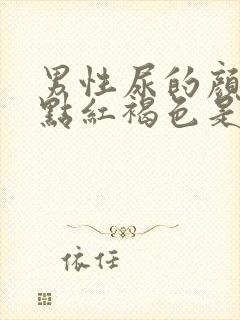 男性尿的顏
點紅褐色是
依任